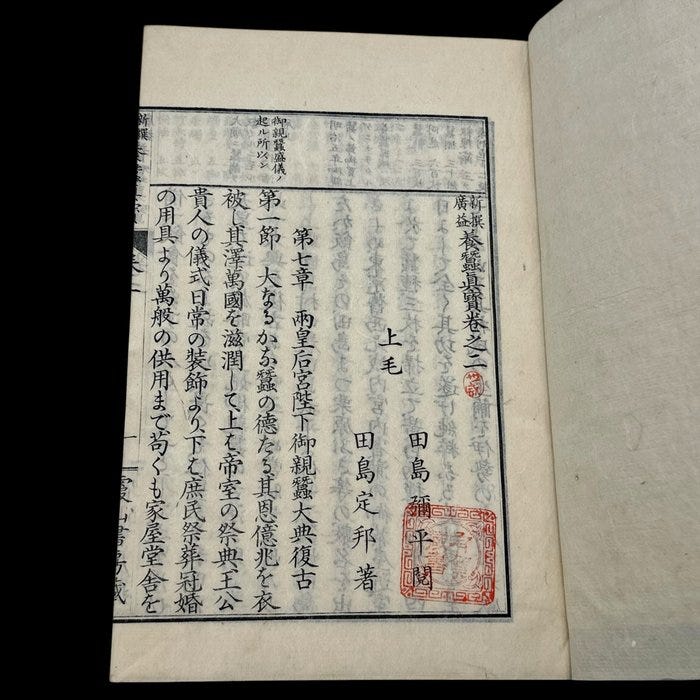 新撰
廣益
養蠶眞寶卷之二
上毛
田島彌平閱
田島定邦著
第七章 兩皇后宮陛下御親蠶大典復古
御親蠶盛儀ノ
起ル所以ン
第一節 大なるかな蠶の德たる其恩億兆を衣
被し其澤萬國を滋潤して上は帝室の祭典王公
貴人の儀式日常の裝飾より下は庶民祭葬冠婚
の用具より萬般の供用まで苟くも家屋堂舍を